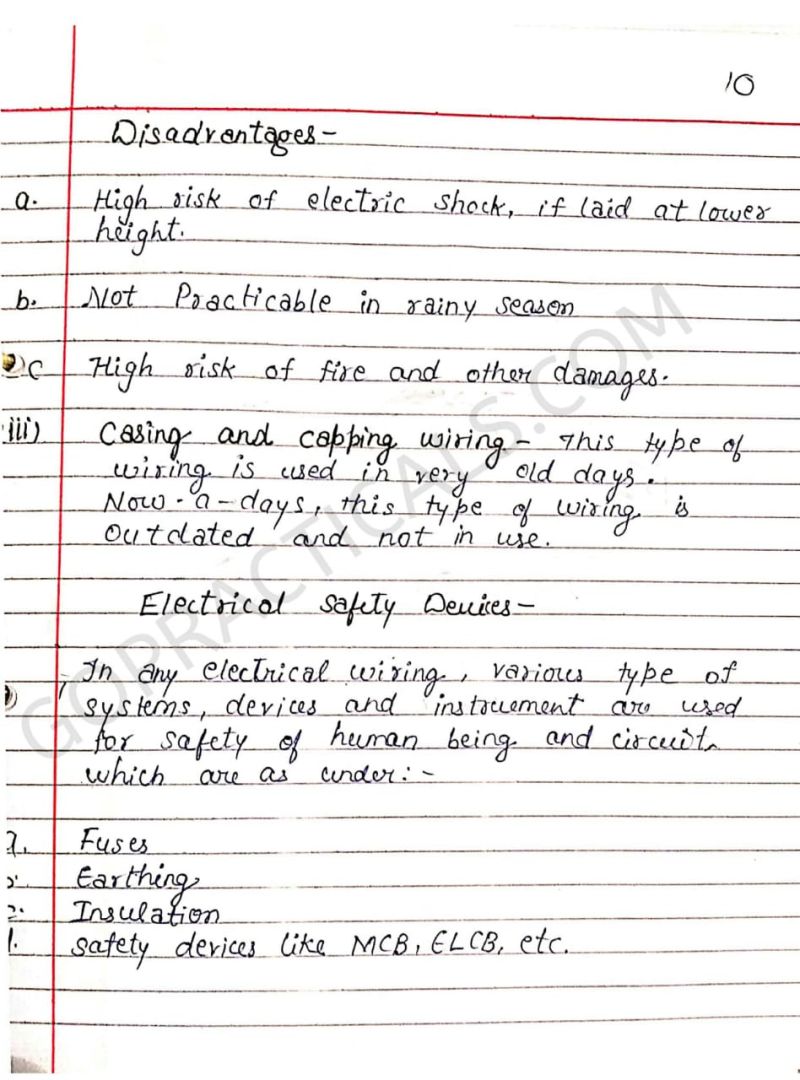 10
Disadvantages-
a. High risk of electric shock, if laid at lower
height.
b. Not Practicable in rainy season
c High risk of fire and other damages.
iii) Casing and capping wiring - This type of
wiring is used in very old days.
Now-a-days, this type of wiring is
outdated and not in use.
Electrical safety Devices-
In any electrical wiring, various type of
systems, devices and instruement are used
for safety of human being and circuit
which are as under:-
Fuses
Earthing
Insulation
safety devices like MCB, ELCB, etc.
GOPRACTICALS.COM